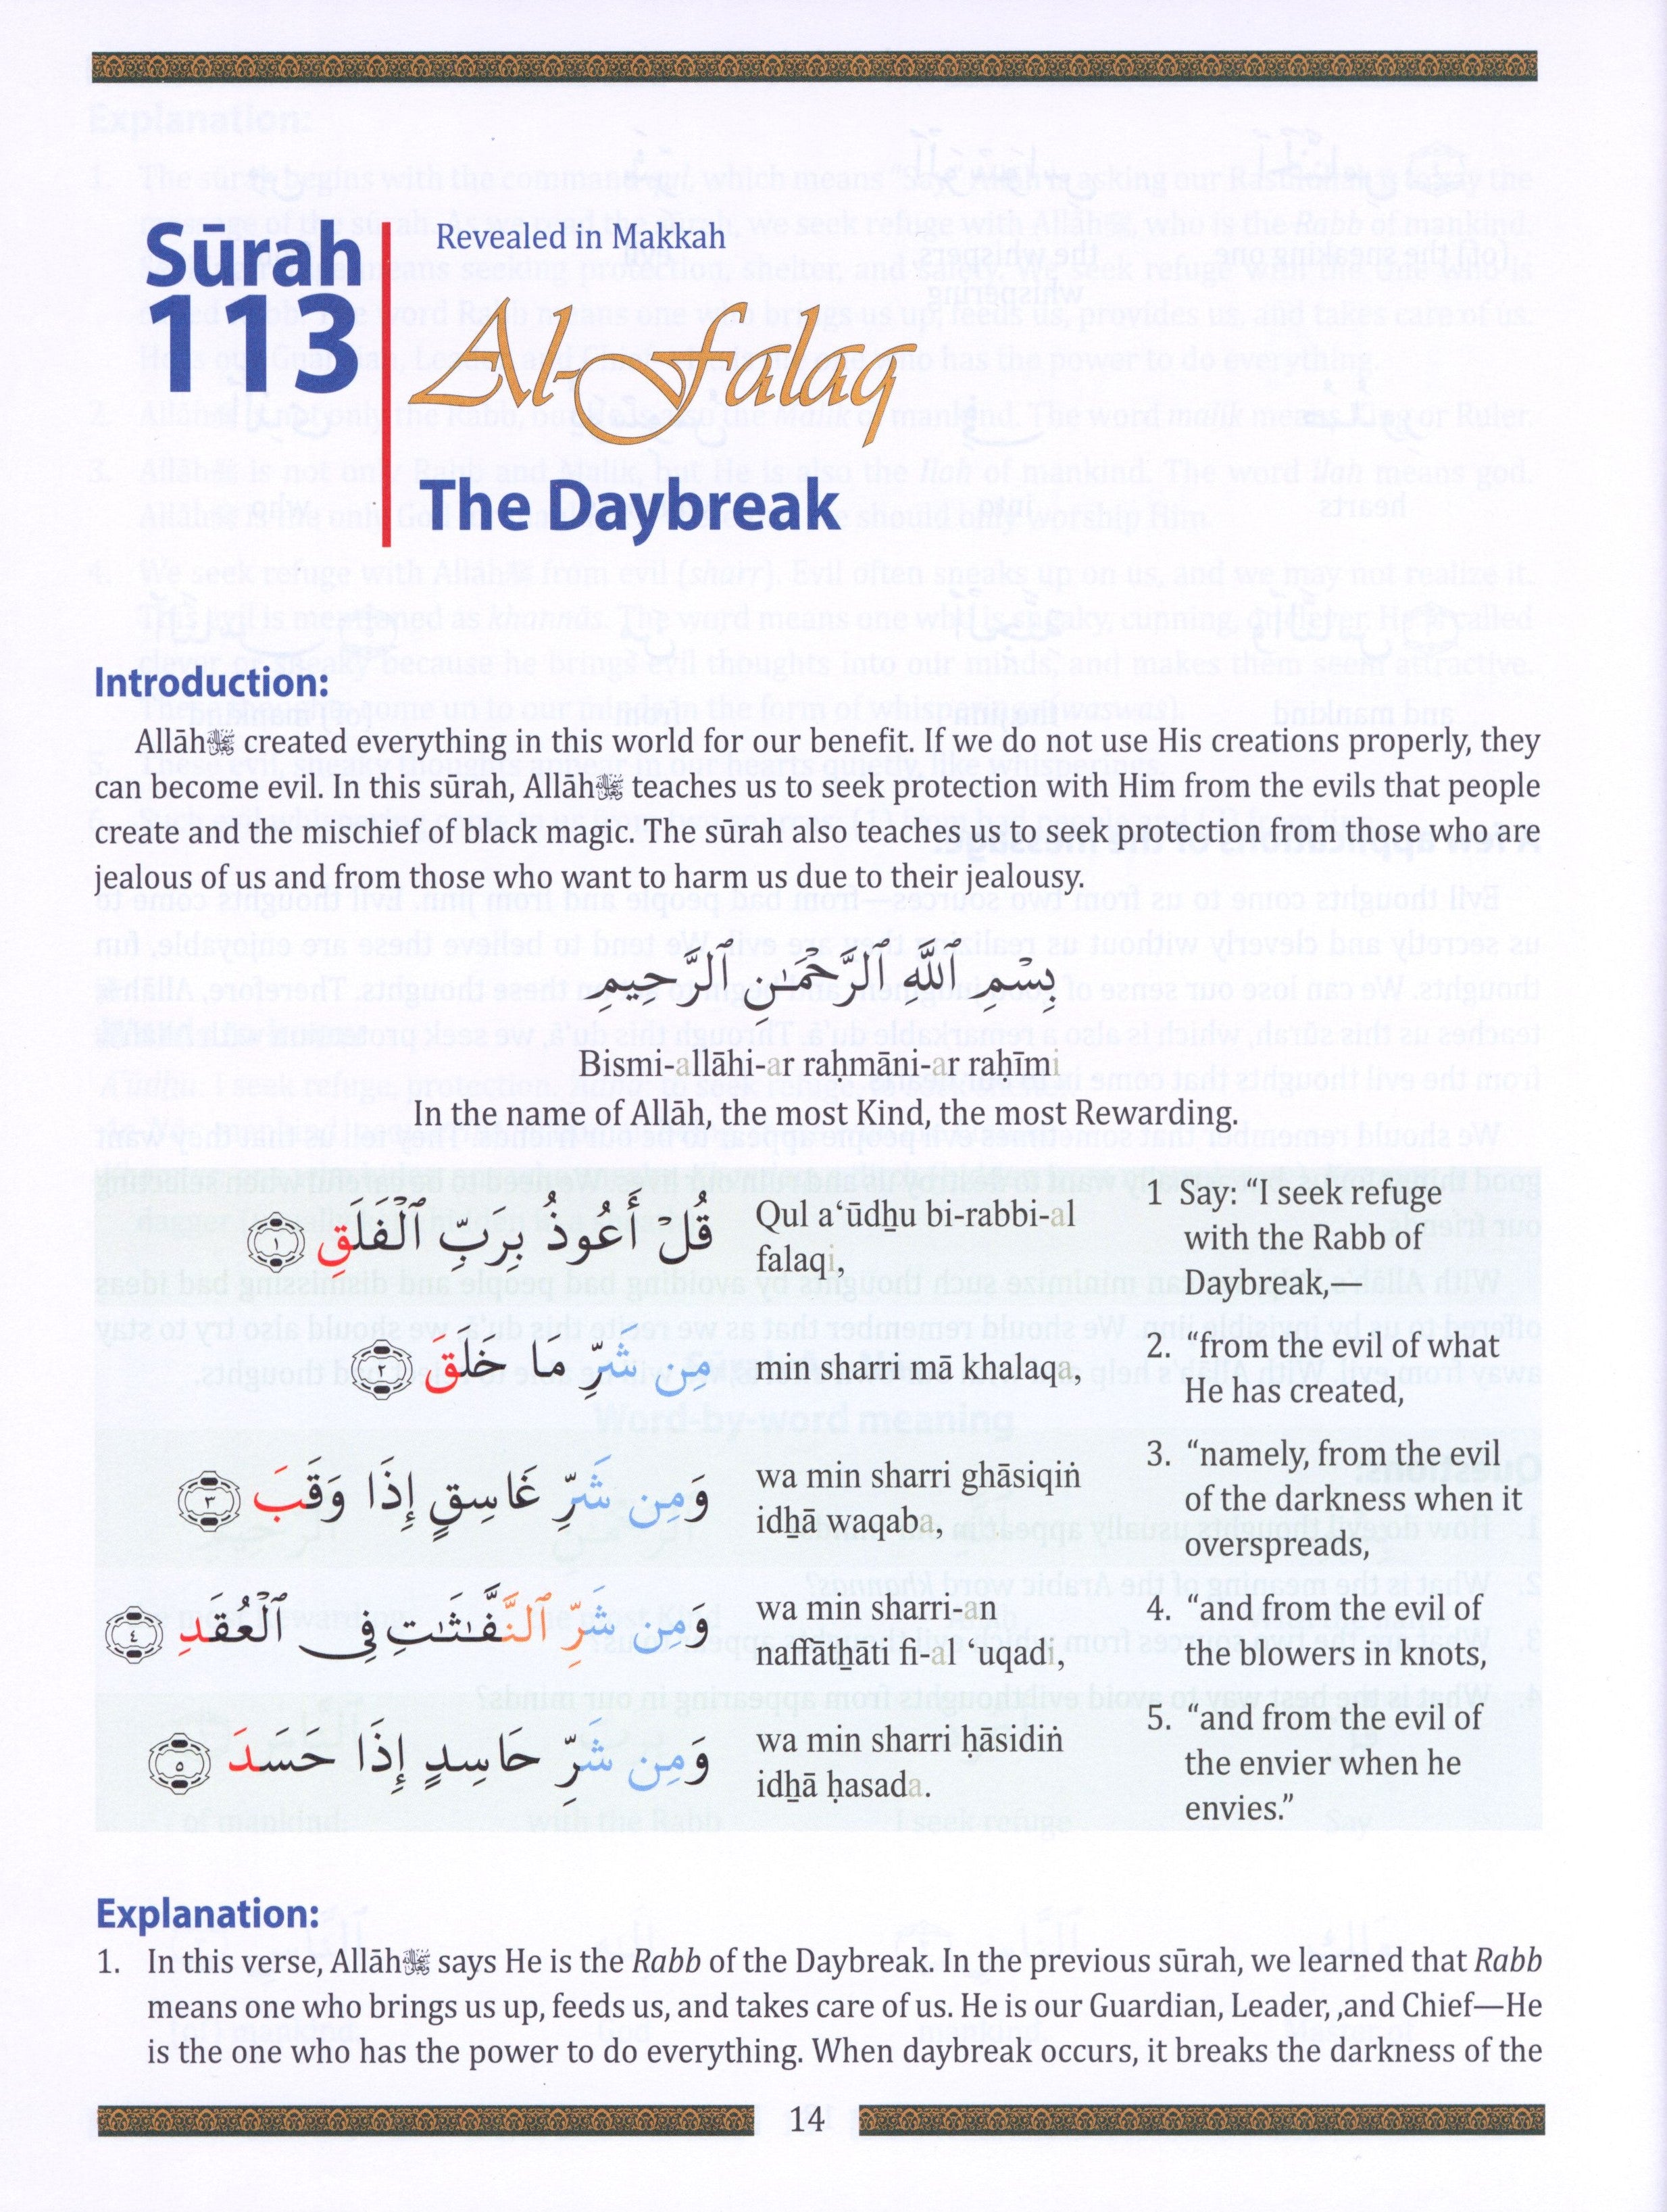 Sūrah
113
Revealed in Makkah
Al-Falaq
The Daybreak
Introduction:
Allāhﷻ created everything in this world for our benefit. If we do not use His creations properly, they
can become evil. In this sūrah, Allāhﷻ teaches us to seek protection with Him from the evils that people
create and the mischief of black magic. The sūrah also teaches us to seek protection from those who are
jealous of us and from those who want to harm us due to their jealousy.
بِسْمِ ٱللَّهِ ٱلرَّحْمَـٰنِ ٱلرَّحِيمِ
Bismi-allāhi-ar rahmāni-ar raḥīmi
In the name of Allāh, the most Kind, the most Rewarding.
قُلْ أَعُوذُ بِرَبِّ ٱلْفَلَقِ ١
Qul a‘ūdẖu bi-rabbi-al
falaqi,
1 Say: “I seek refuge
with the Rabb of
Daybreak,—
مِن شَرِّ مَا خَلَقَ ٢
min sharri mā khalaqa,
2. “from the evil of what
He has created,
وَمِن شَرِّ غَاسِقٍ إِذَا وَقَبَ ٣
wa min sharri ghāsiqiṅ
idẖā waqaba,
3. “namely, from the evil
of the darkness when it
overspreads,
وَمِن شَرِّ ٱلنَّفَّـٰثَـٰتِ فِى ٱلْعُقَدِ ٤
wa min sharri-an
naffātẖāti fi-al ‘uqadi,
4. “and from the evil of
the blowers in knots,
وَمِن شَرِّ حَاسِدٍ إِذَا حَسَدَ ٥
wa min sharri ḥāsidiṅ
idẖā ḥasada.
5. “and from the evil of
the envier when he
envies.”
Explanation:
1. In this verse, Allāhﷻ says He is the Rabb of the Daybreak. In the previous sūrah, we learned that Rabb
means one who brings us up, feeds us, and takes care of us. He is our Guardian, Leader, ,and Chief—He
is the one who has the power to do everything. When daybreak occurs, it breaks the darkness of the
14